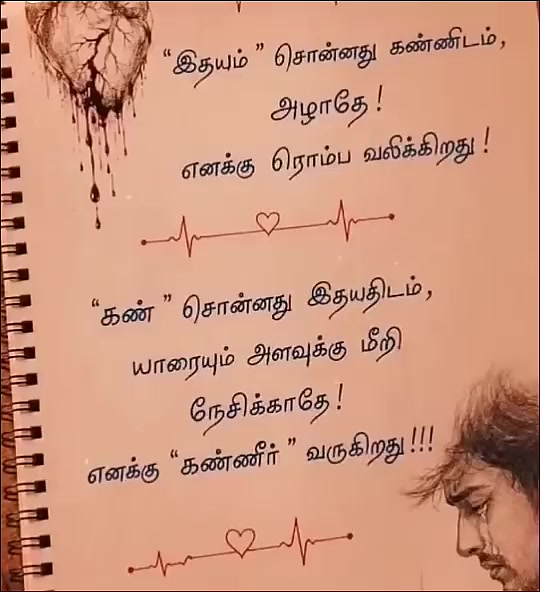 “இதயம் ” சொன்னது கண்ணிடம்,
அழாதே !
எனக்கு ரொம்ப வலிக்கிறது !
“கண் ” சொன்னது இதயதிடம்,
யாரையும் அளவுக்கு மீறி
நேசிக்காதே !
எனக்கு “கண்ணீர் ” வருகிறது !!!